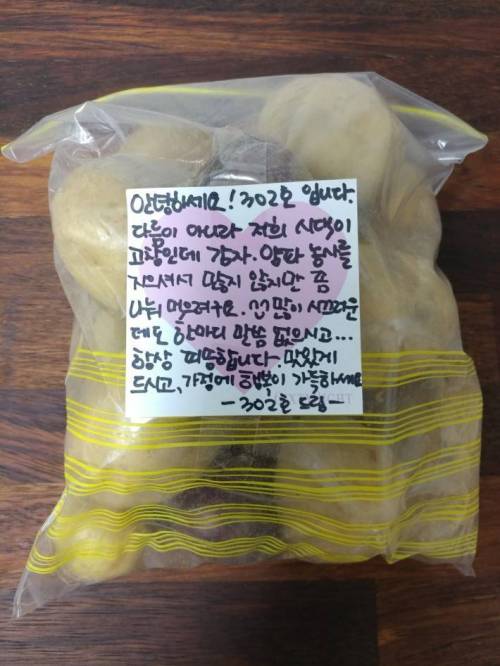 안녕하세요! 302호 입니다.
다름이 아니라 저희 시댁이
고창인데 감자. 양파 농사를
지으셔서 많지 않지만 쫌
나눠 먹으려구요. 넘 많이 시끄러운
데도 한마디 말씀 없으시고...
항상 죄송합니다~ 맛있게
드시고, 가정에 행복이 가득하세요
- 302호 드림 -